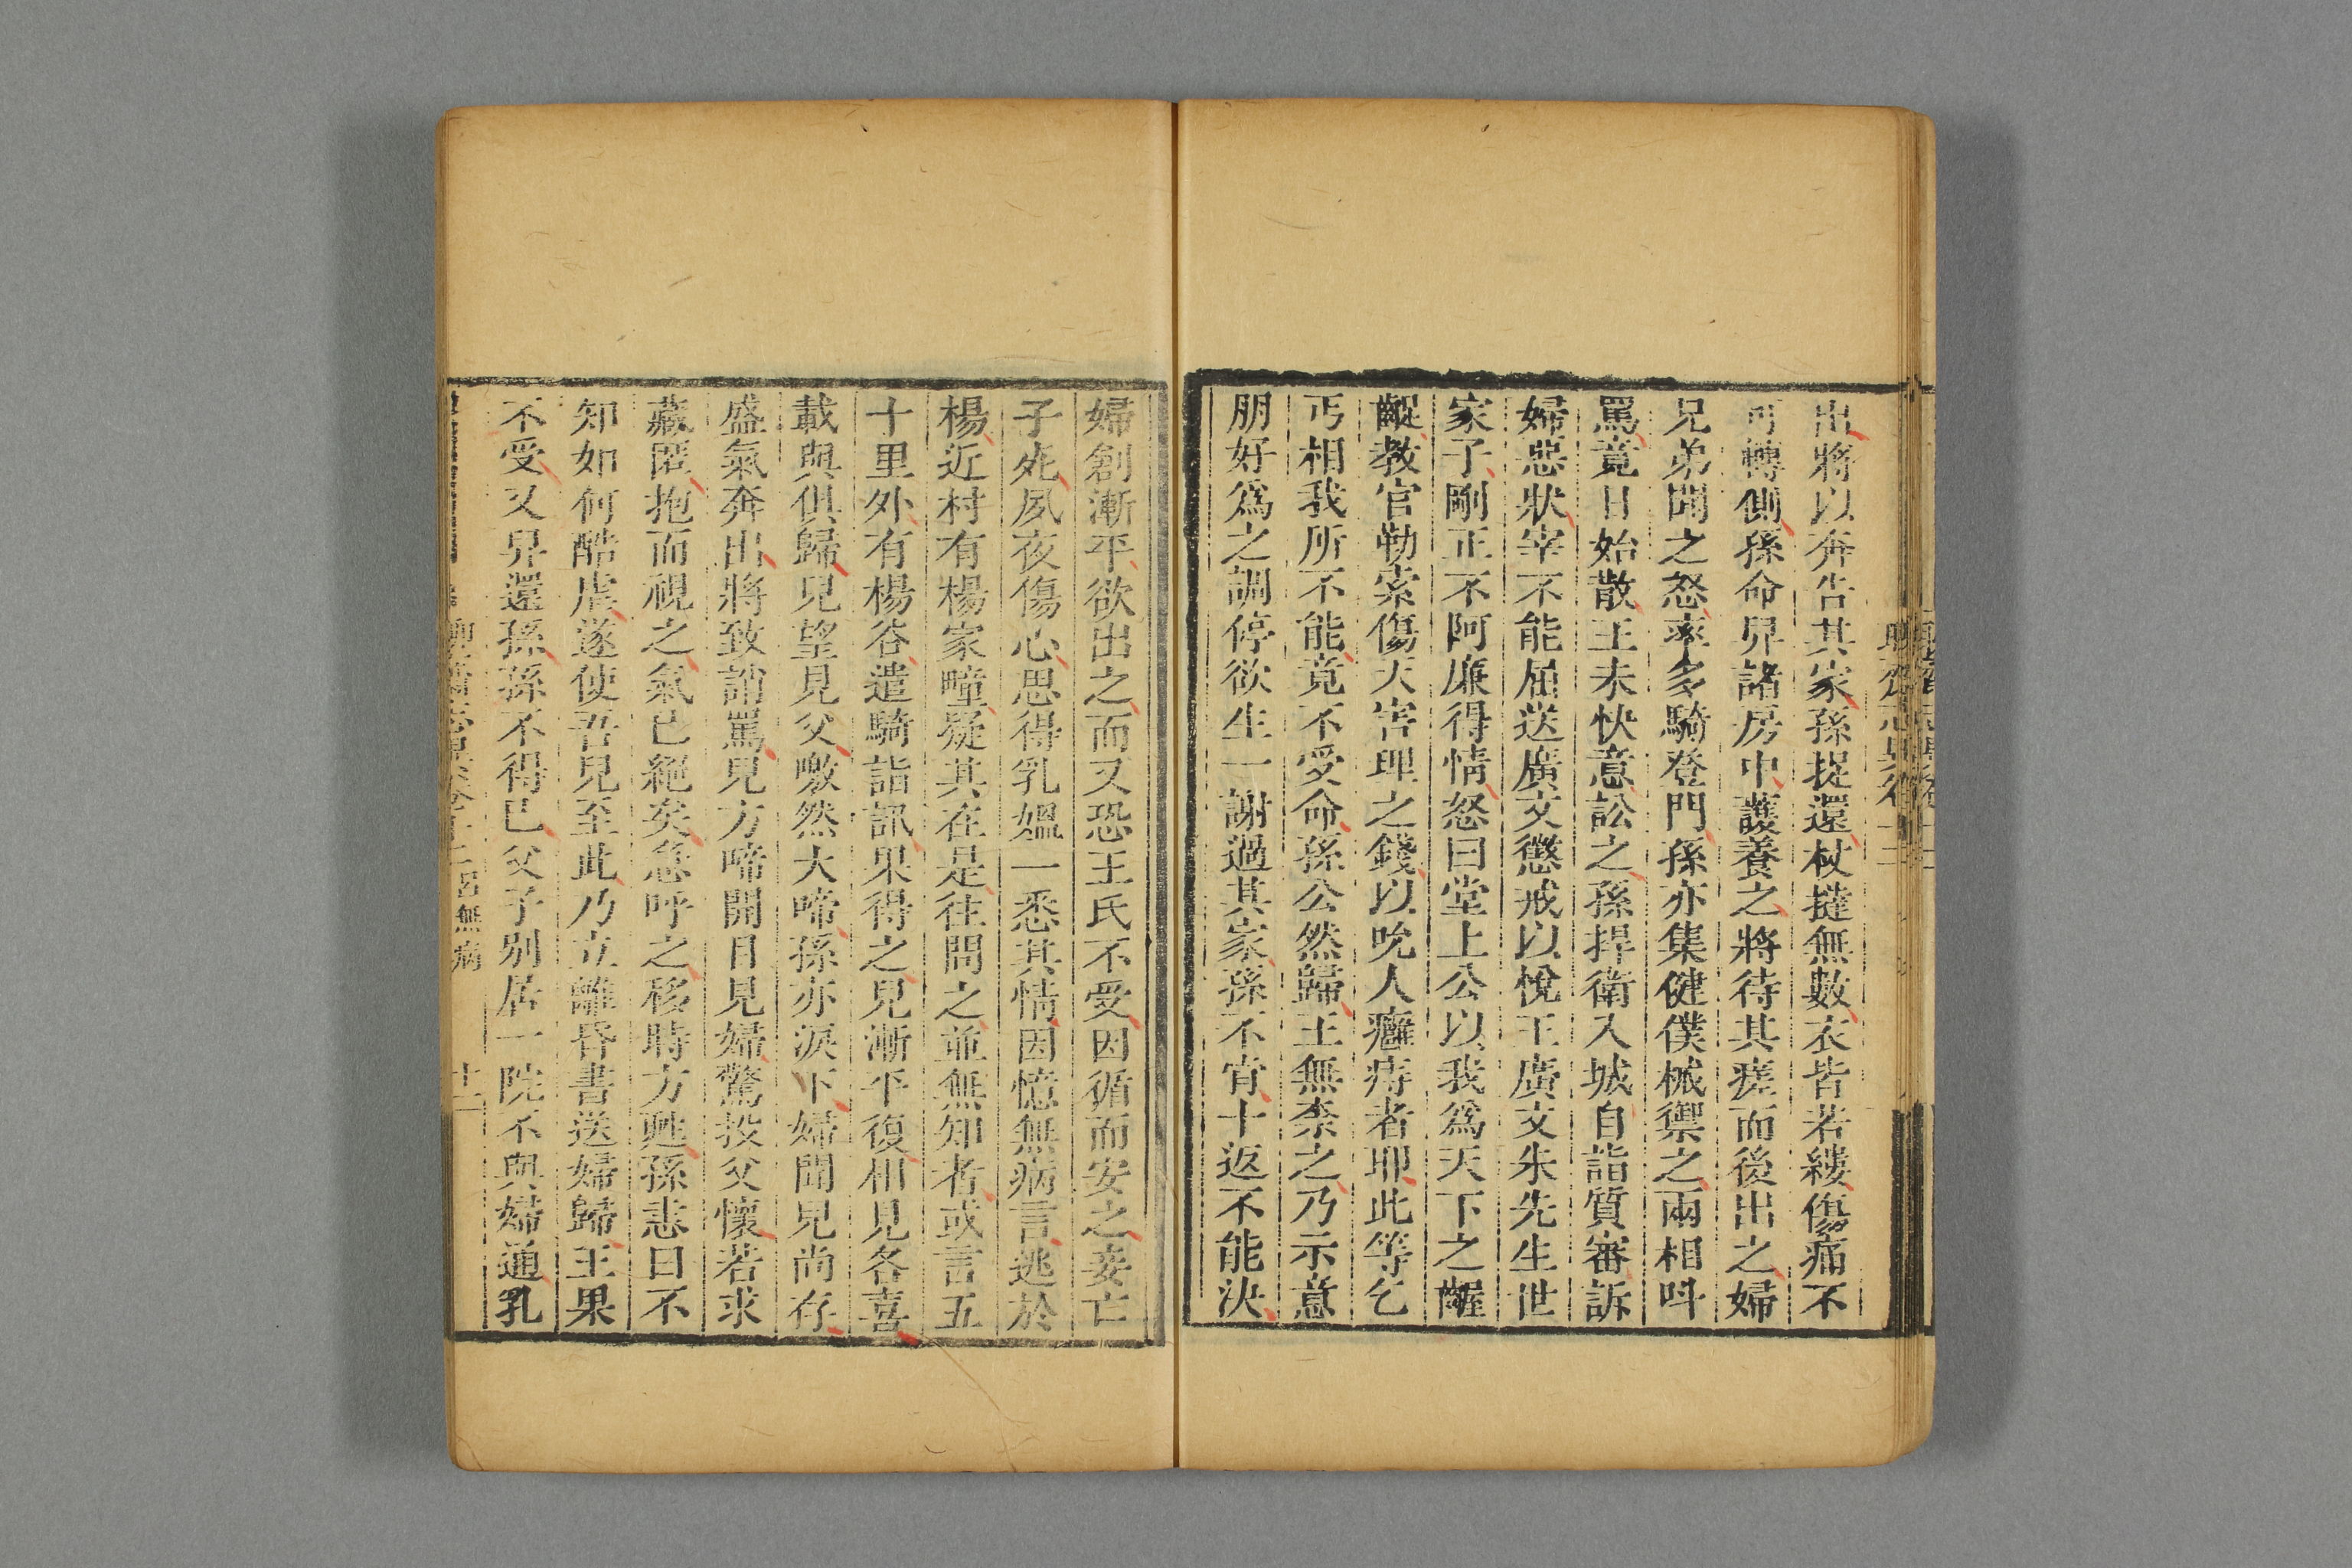 出將以奔告其家孫捉還杖撻無數衣皆若縷傷痛不
可轉側孫命舁諸房中護養之將待其瘥而後出之婦
兄弟聞之怒率多騎登門孫亦集健僕械禦之兩相叫
罵竟日始散王未快意訟之孫捍衛入城自詣質審訴
婦惡狀宰不能屈送廣文懲戒以悅王廣文朱先生世
家子剛正不阿廉得情怒曰堂上公以我爲天下之齷
齪教官勒索傷天害理之錢以吮人癰痔者耶此等乞
丐相我所不能竟不受命孫公然歸王無柰之乃示意
朋好爲之調停欲生一謝過其家孫不肯十返不能決
婦創漸平欲出之而又恐王氏不受因循而安之妾亡
子死夙夜傷心思得乳媼一悉其情因憶無病言逃於
楊近村有楊家疃疑其在是往問之並無知者或言五
十里外有楊谷遣騎詣訊果得之兒漸平復相見各喜
載與俱歸兒望見父噭然大啼孫亦淚下婦聞兒尚存
盛氣奔出將致誚罵兒方啼開目見婦驚投父懷若求
藏匿抱而視之氣已絕矣急呼之移時方甦孫恚曰不
知如何酷虐遂使吾兒至此乃立離昏書送婦歸王果
不受又舁還孫孫不得已父子別居一院不與婦通乳
呂無病
十二